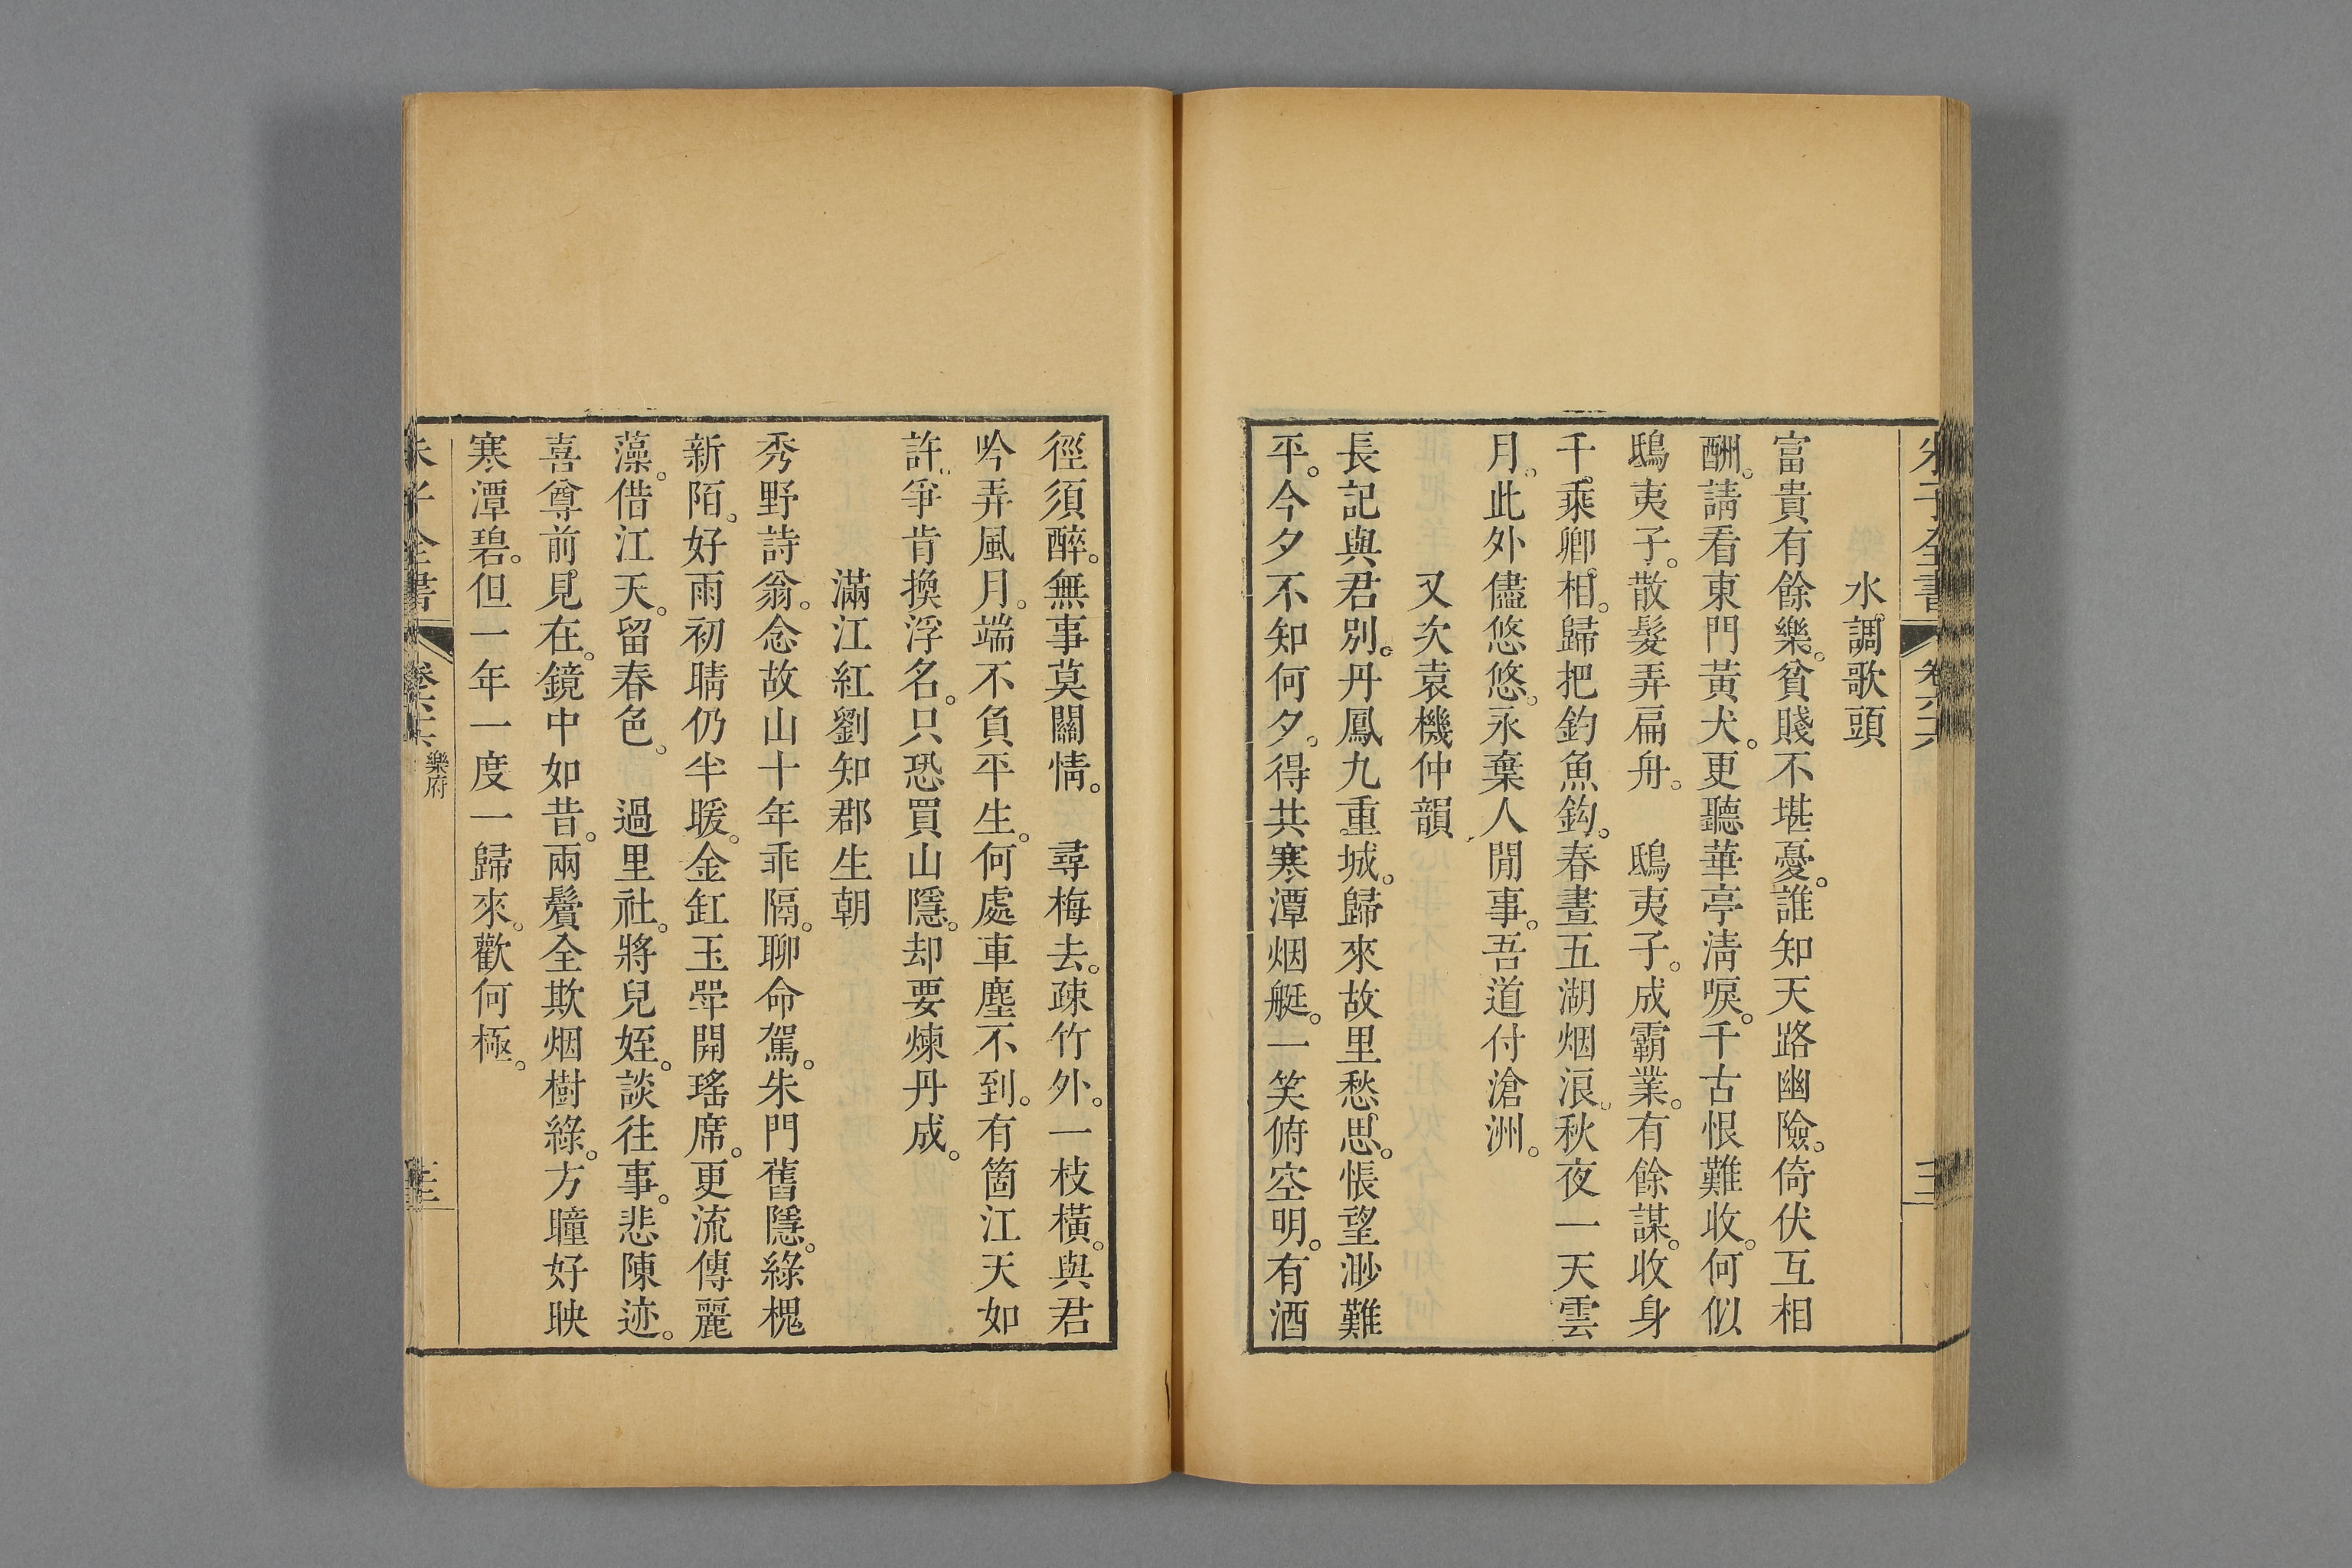 水調歌頭
富貴有餘樂。貧賤不堪憂。誰知天路幽險。倚伏互相
酬。請看東門黃犬。更聽華亭淸唳。千古恨難收。何似
鴟夷子。散髮弄扁舟。　鴟夷子。成霸業。有餘謀。收身
千乘卿相。歸把釣魚鈎。春晝五湖烟浪。秋夜一天雲
月。此外儘悠悠。永棄人閒事。吾道付滄洲。
又次袁機仲韻
長記與君別。丹鳳九重城。歸來故里愁思。悵望渺難
平。今夕不知何夕。得共寒潭烟艇。一笑俯空明。有酒
徑須醉。無事莫關情。　尋梅去。疎竹外。一枝橫。與君
吟弄風月。端不負平生。何處車塵不到。有箇江天如
許。爭肯換浮名。只恐買山隱。却要煉丹成。
滿江紅劉知郡生朝
秀野詩翁。念故山十年乖隔。聊命駕。朱門舊隱。綠槐
新陌。好雨初晴仍半暖。金缸玉斝開瑤席。更流傳麗
藻。借江天。留春色。　過里社。將兒姪。談往事。悲陳迹。
喜尊前見在。鏡中如昔。兩鬢全欺烟樹綠。方瞳好映
寒潭碧。但一年一度一歸來。歡何極。
朱子全書　樂府